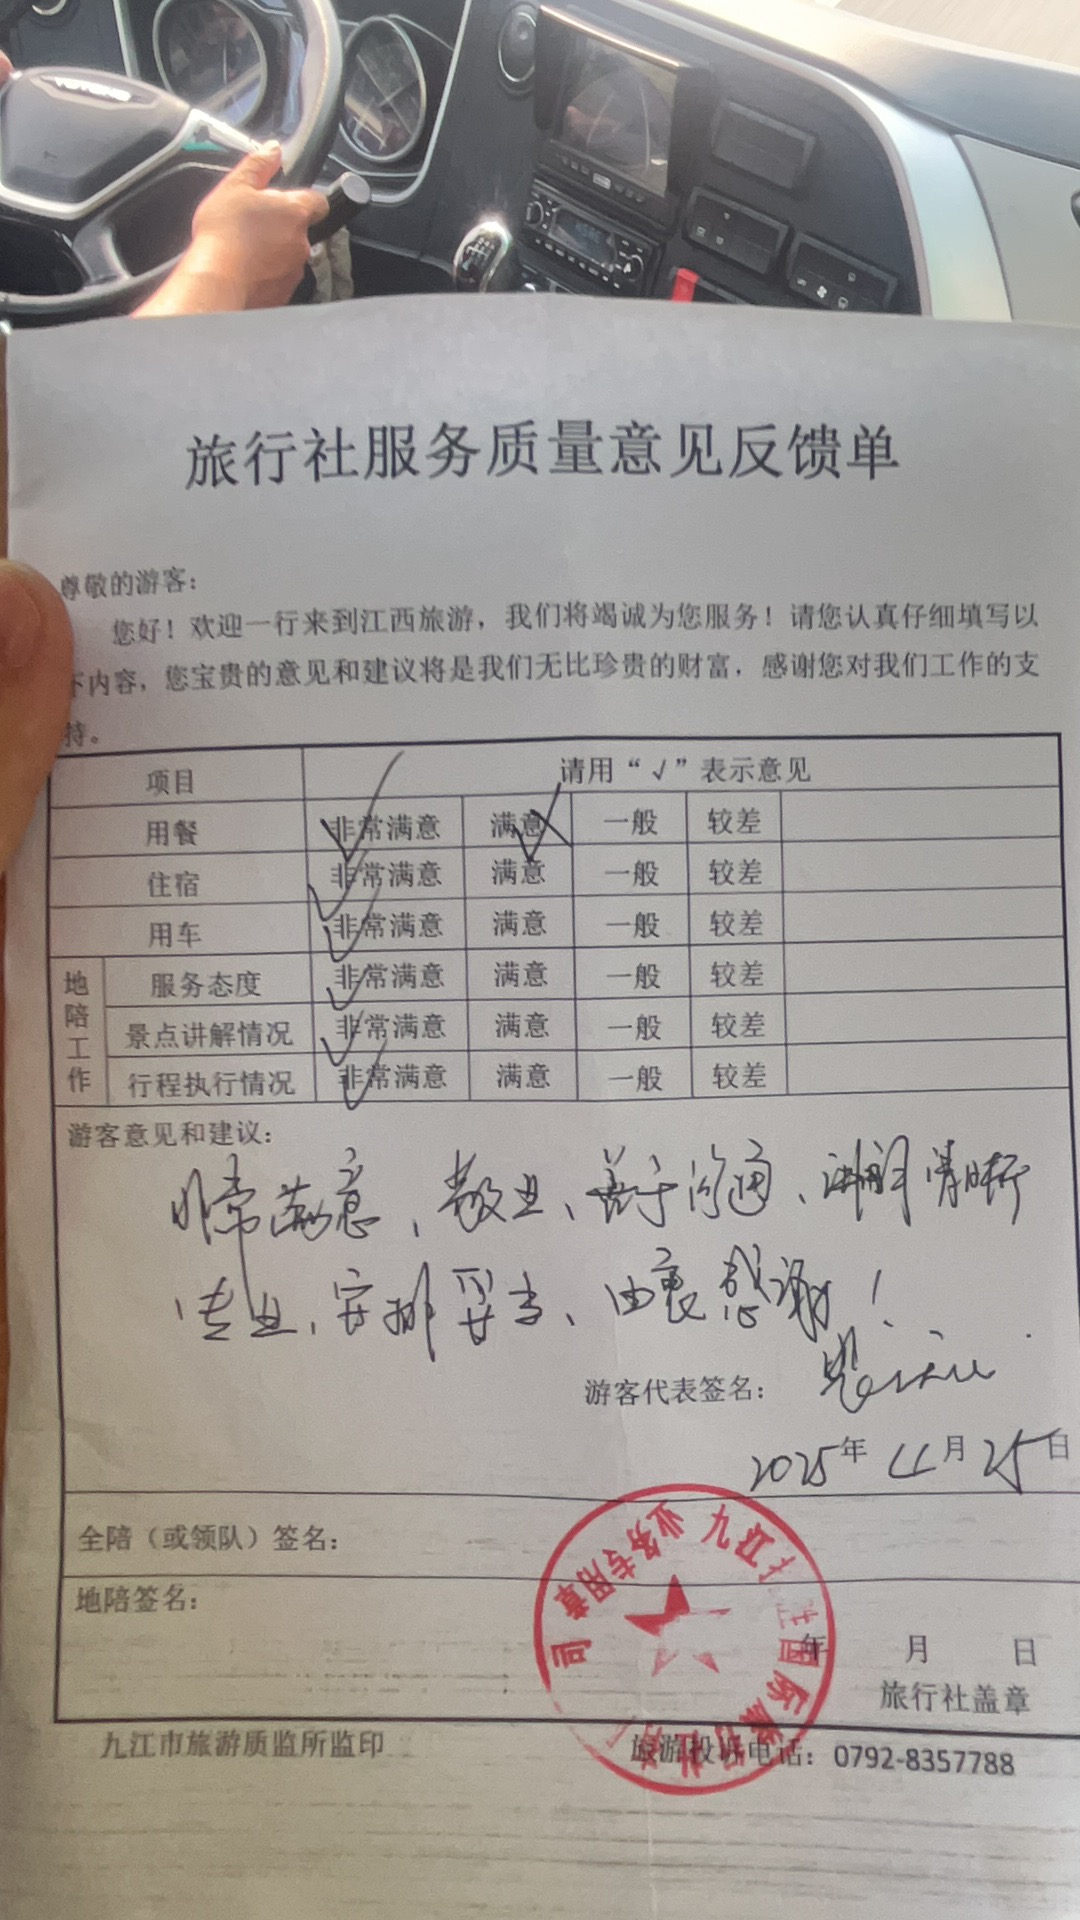 YUTONG
旅行社服务质量意见反馈单
尊敬的游客：
您好！欢迎一行来到江西旅游，我们将竭诚为您服务！请您认真仔细填写以
下内容，您宝贵的意见和建议将是我们无比珍贵的财富，感谢您对我们工作的支
持。
项目 请用“√”表示意见
用餐 非常满意 满意 一般 较差
住宿 非常满意 满意 一般 较差
用车 非常满意 满意 一般 较差
地陪工作
服务态度 非常满意 满意 一般 较差
景点讲解情况 非常满意 满意 一般 较差
行程执行情况 非常满意 满意 一般 较差
游客意见和建议：
非常满意、敬业、善于沟通、讲解清晰
专业、安排妥当、由衷感谢！
游客代表签名：
2025年 11月 25日
全陪（或领队）签名：
地陪签名：
年 月 日
旅行社盖章
九江 国际旅行社 司
业务专用章
九江市旅游质监所监印 旅游投诉电话：0792-8357788